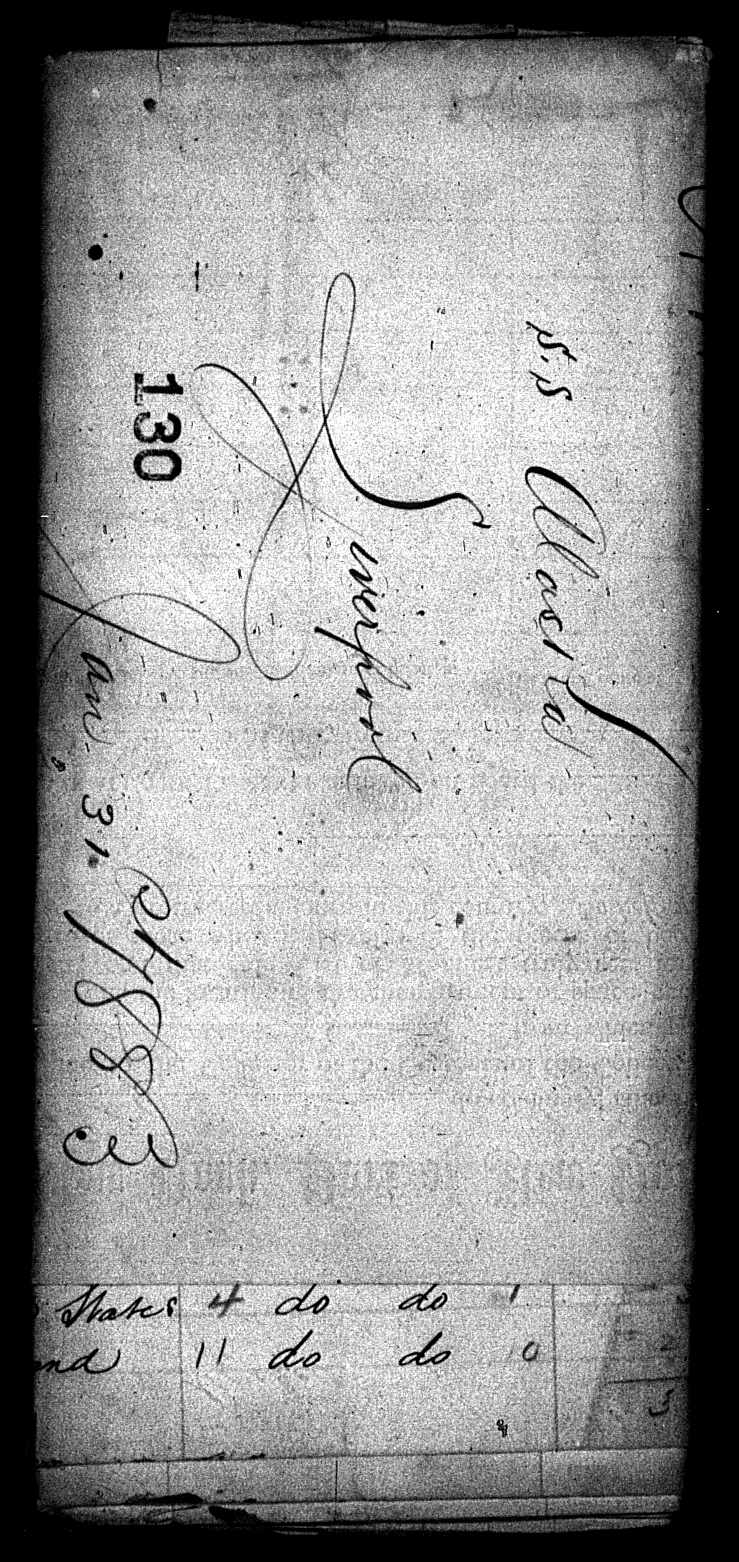 S.S Alaska
Liverpool
130
Jan. 31st 1883
States 4 do do 1
11 do do 0
2
3